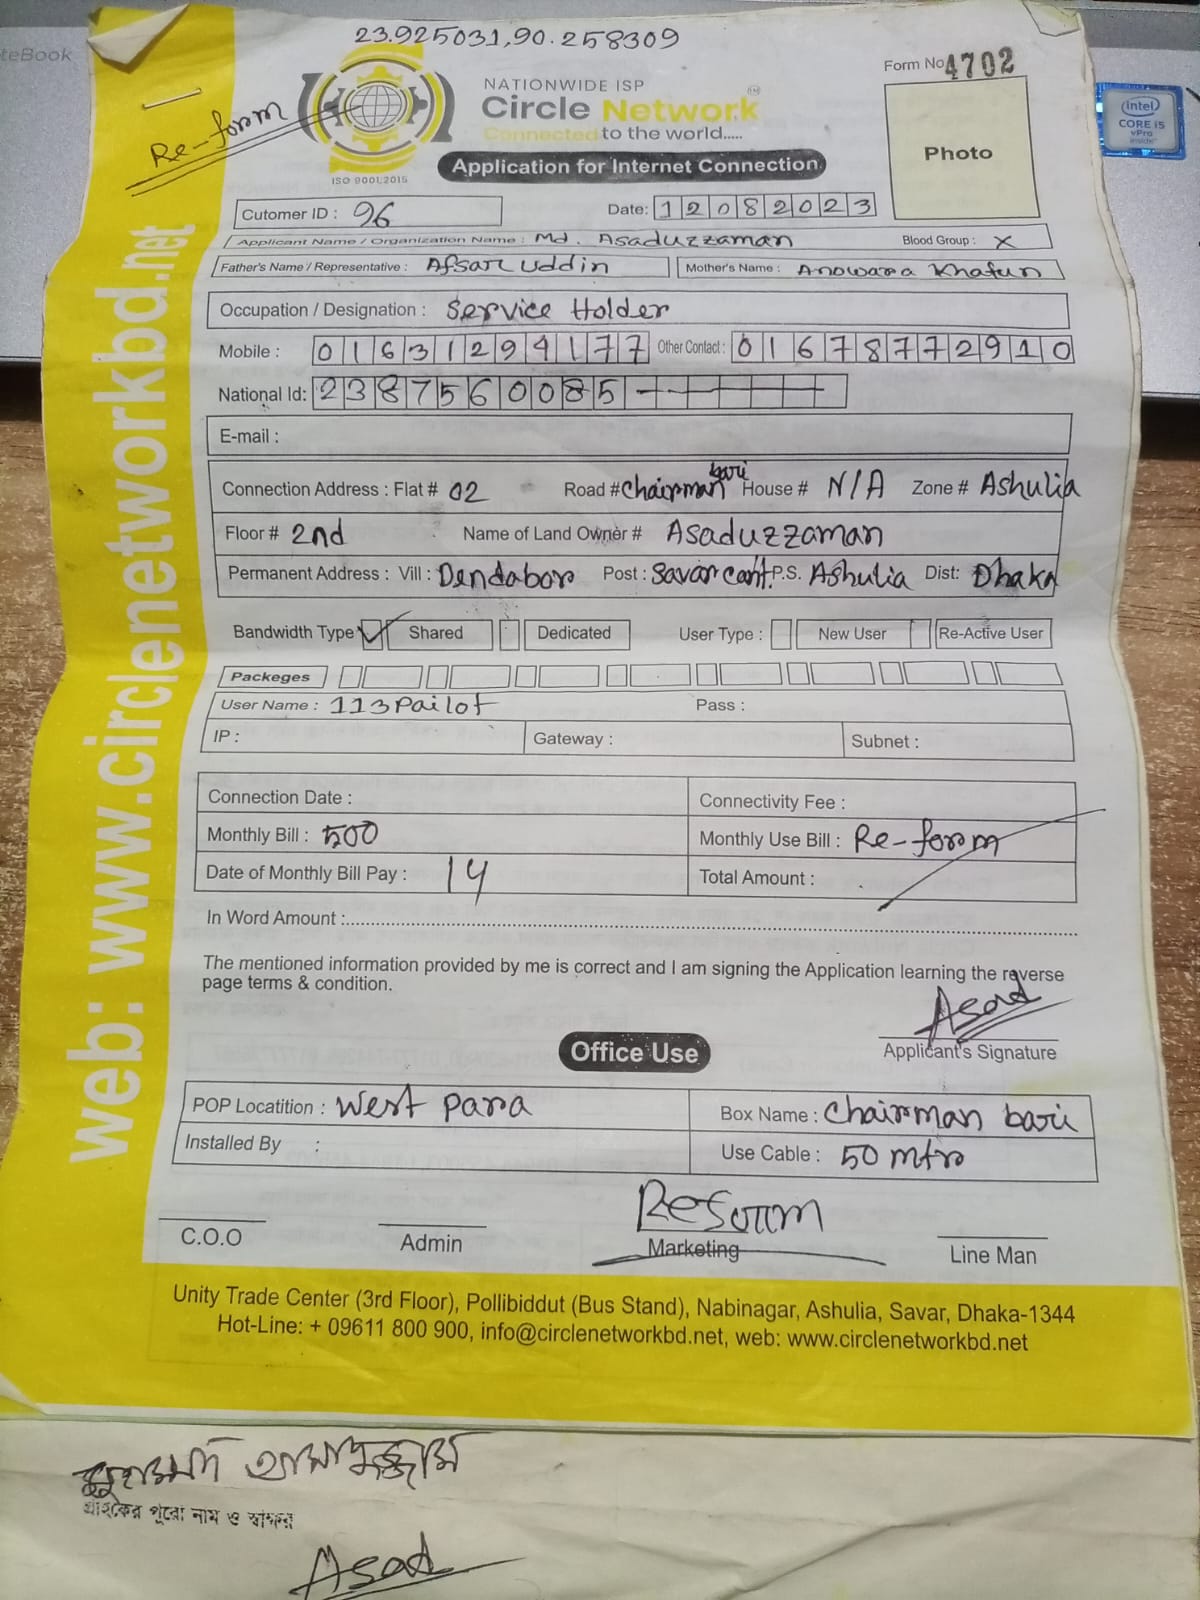 teBook
23.925031,90.258309
Form No 4702
Re-form
NATIONWIDE ISP
Circle Network
Connected to the world.....
ISO 9001:2015
Application for Internet Connection
Photo
intel
CORE i5
vPro
inside
web: www.circlenetworkbd.net
Cutomer ID : 96
Date: 12082023
Applicant Name / Organization Name : Md. Asaduzzaman Blood Group : X
Father's Name / Representative : Afsar Uddin Mother's Name : Anowara Khatun
Occupation / Designation : Service Holder
Mobile : 01631294177 Other Contact : 01678772910
National Id: 2387560085
E-mail :
Connection Address : Flat # 02 Road # Chairman bari House # N/A Zone # Ashulia
Floor # 2nd Name of Land Owner # Asaduzzaman
Permanent Address : Vill : Dendabor Post : Savar cant. P.S. Ashulia Dist: Dhaka
Bandwidth Type ✓ Shared Dedicated User Type : New User Re-Active User
Packeges
User Name : 113Pailot Pass :
IP : Gateway : Subnet :
Connection Date : Connectivity Fee :
Monthly Bill : 500 Monthly Use Bill : Re-form
Date of Monthly Bill Pay : 14 Total Amount :
In Word Amount :
The mentioned information provided by me is correct and I am signing the Application learning the reverse
page terms & condition.
Asad
Applicant's Signature
Office Use
POP Locatition : West para Box Name : Chairman bari
Installed By : Use Cable : 50 mtr
Reform
C.O.O Admin Marketing Line Man
Unity Trade Center (3rd Floor), Pollibiddut (Bus Stand), Nabinagar, Ashulia, Savar, Dhaka-1344
Hot-Line: + 09611 800 900, info@circlenetworkbd.net, web: www.circlenetworkbd.net
গ্রাহকের পুরো নাম ও স্বাক্ষর
Asad